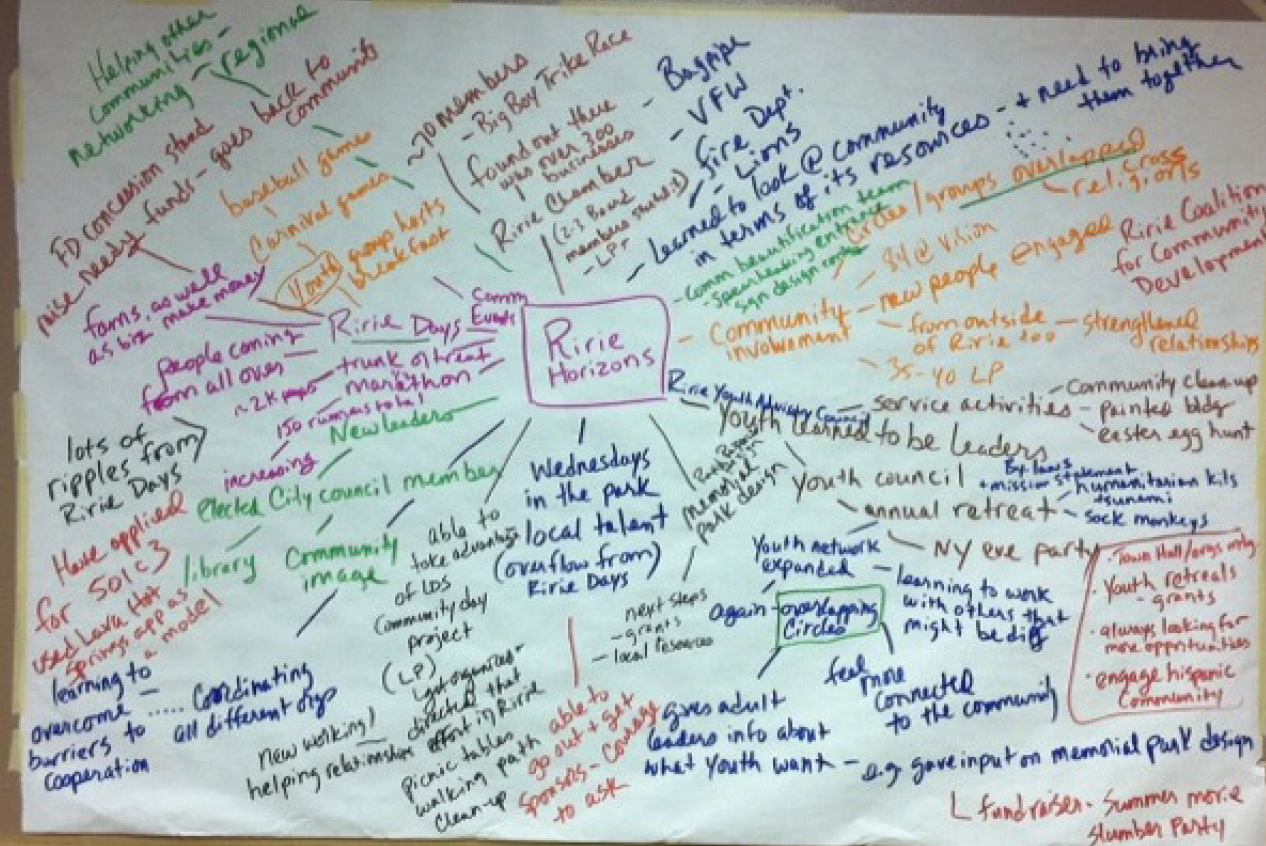 Helping other
communities -
networking - regional
FD concession stand
raise needy funds - goes back to
community
baseball games
Carnival games
Youth group hosts
breakfast
~70 members
- Big Boy Trike Race
found out there
was over 300
businesses
Ririe Chamber
(2-3 Board
members started)
- LP+
- Bagpipe
- VFW
- Fire Dept.
- Lions
- Learned to look @ community
in terms of its resources - + need to bring
them together
circles/groups overlapped
- cross
religions
- Comm beautification team
- spearheading entrance
sign design
Community
involvement
- 84 @ vision
- new people engaged
- from outside
of Ririe too
- strengthened
relationships
- 35-40 LP
Ririe Coalition
for Community
Development
farms, as well
as biz make money
Ririe Days
Comm
Events
people coming
from all over
~2K people
trunk or treat
marathon
150 runners total
increasing
lots of
ripples from
Ririe Days
Ririe
Horizons
New leaders
elected City council member
library
Community
image
Have applied
for 501c3
used Lava Hot
Springs app as
a model
learning to
overcome
barriers to
cooperation
..... Coordinating
all different orgs
able to
take advantage
of LDS
Community day
project
(LP)
got organizers -
directed that
effort in Ririe
New working/
helping relationships
picnic tables
walking path
clean-up
Wednesdays
in the park
local talent
(overflow from)
Ririe Days
able to
go out + get
sponsors - courage
to ask
memorial
park design
next steps
- grants
- local resources
Ririe Youth Advisory Council
Youth learned to be leaders
service activities
- Community clean-up
- painted bldg
- easter egg hunt
Youth council
By laws
+ mission statement
- annual retreat
- humanitarian kits
tsunami
- sock monkeys
- NY eve party
Youth network
expanded
- learning to work
with others that
might be diff
again - overlapping
Circles
feel
more
connected
to the community
gives adult
leaders info about
what youth want - e.g. gave input on memorial park design
· Town Hall/orgs mtg.
· Youth retreats
- grants
· always looking for
more opportunities
· engage hispanic
Community
L fundraiser - Summer movie
slumber Party